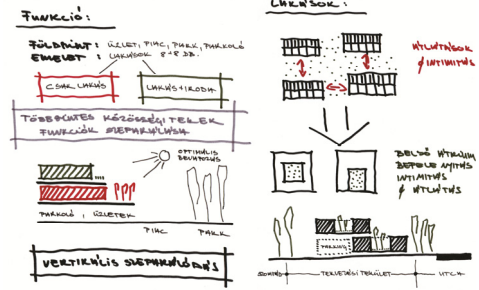 FUNKCIÓ:
FÖLDSZINT: ÜZLET, PIAC, PARK, PARKOLÓ
EMELET: LAKÁSOK 8+8 DB.
CSAK LAKÁS
LAKÁS+IRODA
TÖBBSZINTES KÖZÖSSÉGI TEREK
FUNKCIÓK SZEPARÁLÁSA
OPTIMÁLIS
BENAPOZÁS
PARKOLÓ, ÜZLETEK
PIAC
PARK
VERTIKÁLIS SZEPARÁLÓDÁS
LAKÁSOK:
ÁTLÁTÁSOK
Ø INTIMITÁS
BELSŐ ÁTRIUM
BEFELE NYITÁS
INTIMITÁS
Ø ÁTLÁTÁS
PARKING
TERVEZÉSI TERÜLET
UTCA